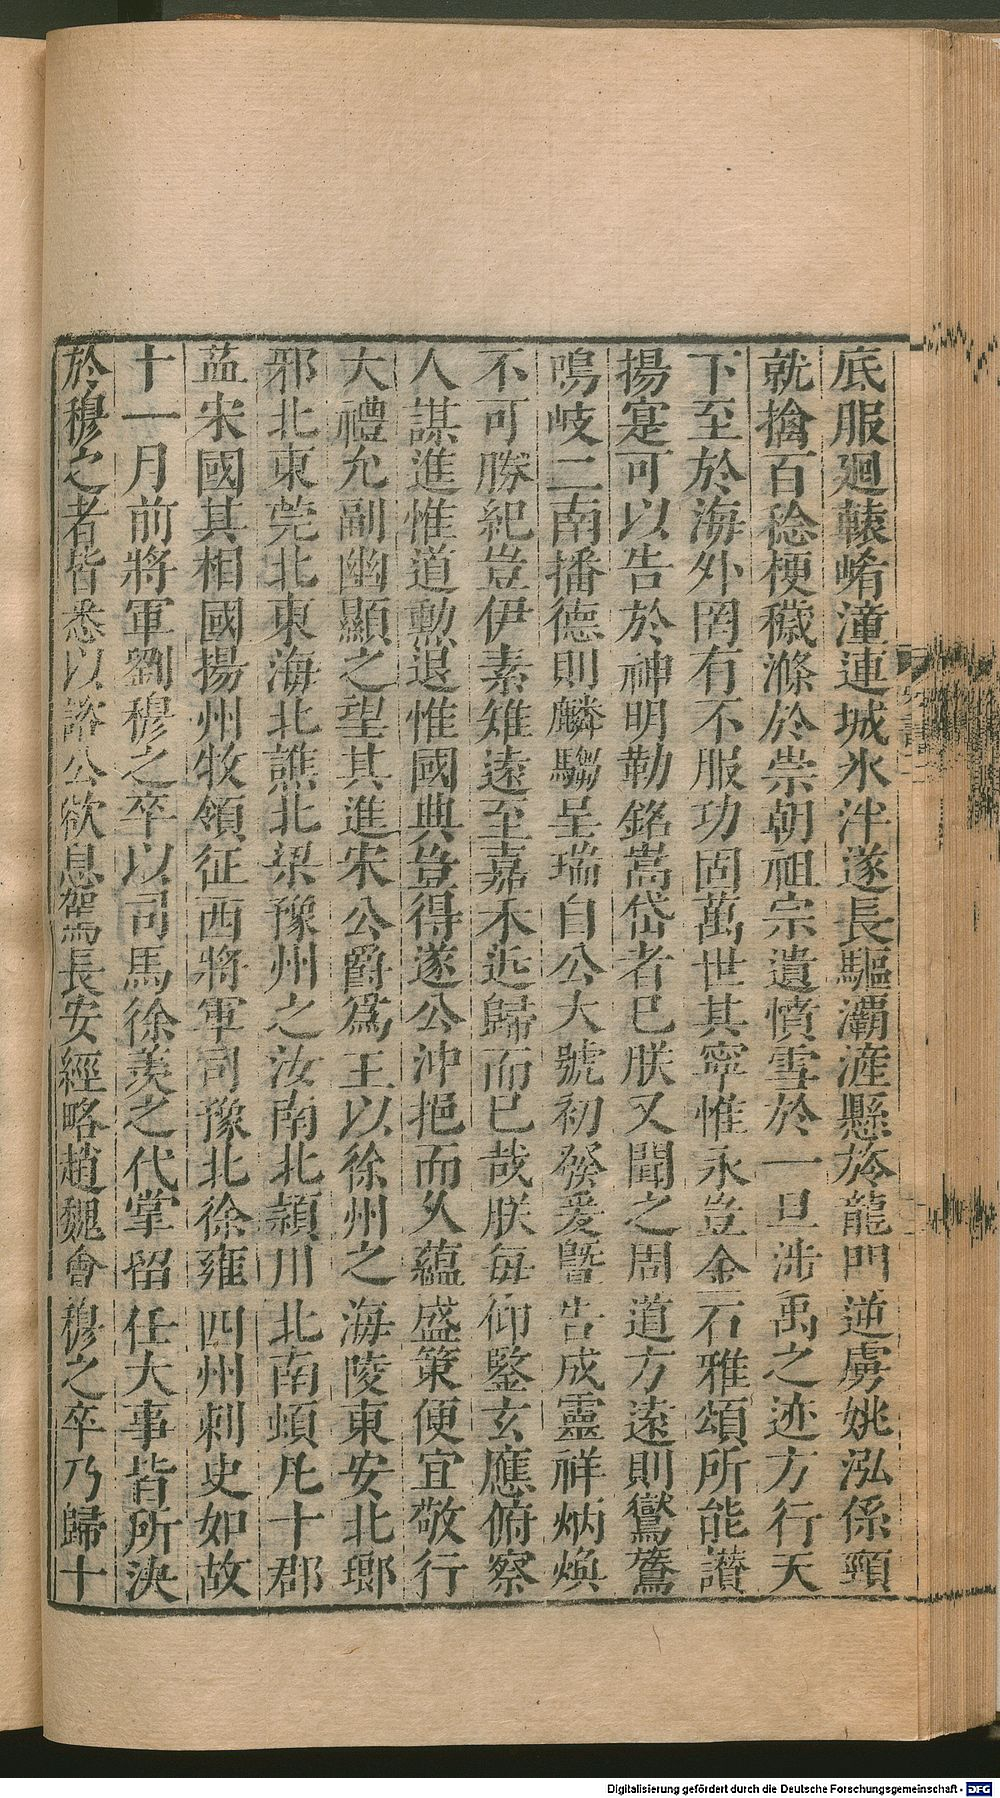 底服廻轅崤潼連城氷泮遂長驅灞滻懸旍龍門逆虜姚泓係頸
就擒百稔梗穢滌於崇朝祖宗遺憤雪於一旦涉禹之迹方行天
下至於海外罔有不服功固萬世其寧惟永豈金石雅頌所能讃
揚寔可以告於神明勒銘嵩岱者已朕又聞之周道方遠則鸑鷟
鳴岐二南播德則麟騶呈瑞自公大號初發爰曁告成靈祥炳煥
不可勝紀豈伊素雉遠至嘉禾近歸而已哉朕每仰鑒玄應俯察
人謀進惟道勲退惟國典豈得遂公沖挹而久蘊盛策便宜敬行
大禮允副幽顯之望其進宋公爵爲王以徐州之海陵東安北瑯
邪北東莞北東海北譙北梁豫州之汝南北潁川北南頓凡十郡
益宋國其相國揚州牧領征西將軍司豫北徐雍四州刺史如故
十一月前將軍劉穆之卒以司馬徐羨之代掌留任大事皆所決
於穆之者皆悉以諮公欲息駕長安經略趙魏會穆之卒乃歸十
宋書二
Digitalisierung gefördert durch die Deutsche Forschungsgemeinschaft - DFG